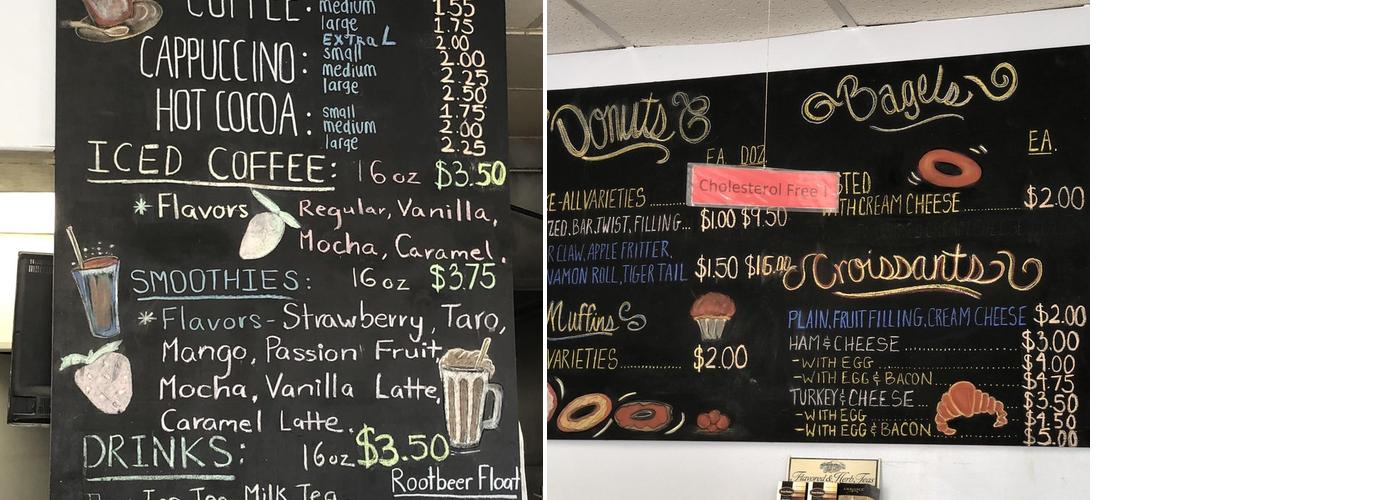 COFFEE: medium 1.55
large 1.75
EXTRA L 2.00
CAPPUCCINO: small 2.00
medium 2.25
large 2.50
HOT COCOA: small 1.75
medium 2.00
large 2.25
ICED COFFEE: 16oz $3.50
* Flavors Regular, Vanilla,
Mocha, Caramel.
SMOOTHIES: 16oz $3.75
* Flavors - Strawberry, Taro,
Mango, Passion Fruit,
Mocha, Vanilla Latte,
Caramel Latte.
DRINKS: 16oz $3.50
Rootbeer Float
Milk Tea
Donuts
EA. DOZ.
Cholesterol Free !
VARIETIES
BAR, TWIST, FILLING... $1.00 $9.50
CLAW, APPLE FRITTER,
ROLL, TIGER TAIL $1.50 $16.00
Muffins
VARIETIES $2.00
Bagels
EA.
WITH CREAM CHEESE $2.00
Croissants
PLAIN, FRUIT FILLING, CREAM CHEESE $2.00
HAM & CHEESE $3.00
-WITH EGG $4.00
-WITH EGG & BACON $4.75
TURKEY & CHEESE $3.50
-WITH EGG $4.50
-WITH EGG & BACON $5.00
Flavored & Herb Teas